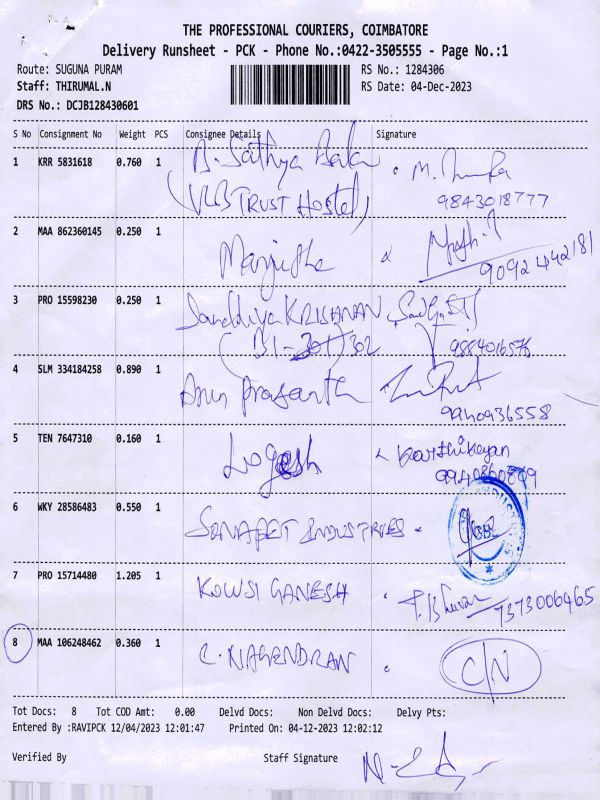 THE PROFESSIONAL COURIERS, COIMBATORE
Delivery Runsheet - PCK - Phone No.:0422-3505555 - Page No.:1
Route: SUGUNA PURAM RS No.: 1284306
Staff: THIRUMAL.N RS Date: 04-Dec-2023
DRS No.: DCJB128430601
S No Consignment No Weight PCS Consignee Details Signature
1 KRR 5831618 0.760 1 B. Sathya Bala M.
(VLB TRUST Hostel) 9843018777
2 MAA 862360145 0.250 1 Manjitha
9092442181
3 PRO 15598230 0.250 1 KRISHNAN
(B1-301/302 9884016576
4 SLM 334184258 0.890 1 Arun Prasanth
9940936558
5 TEN 7647310 0.160 1 Logesh Karthikeyan
6 WKY 28586483 0.550 1 INDUSTRIES
7 PRO 15714480 1.205 1 KOWSI GANESH 7373006465
8 MAA 106248462 0.360 1 C. NAGENDRAN C/N
Tot Docs: 8 Tot COD Amt: 0.00 Delvd Docs: Non Delvd Docs: Delvy Pts:
Entered By :RAVIPCK 12/04/2023 12:01:47 Printed On: 04-12-2023 12:02:12
Verified By Staff Signature